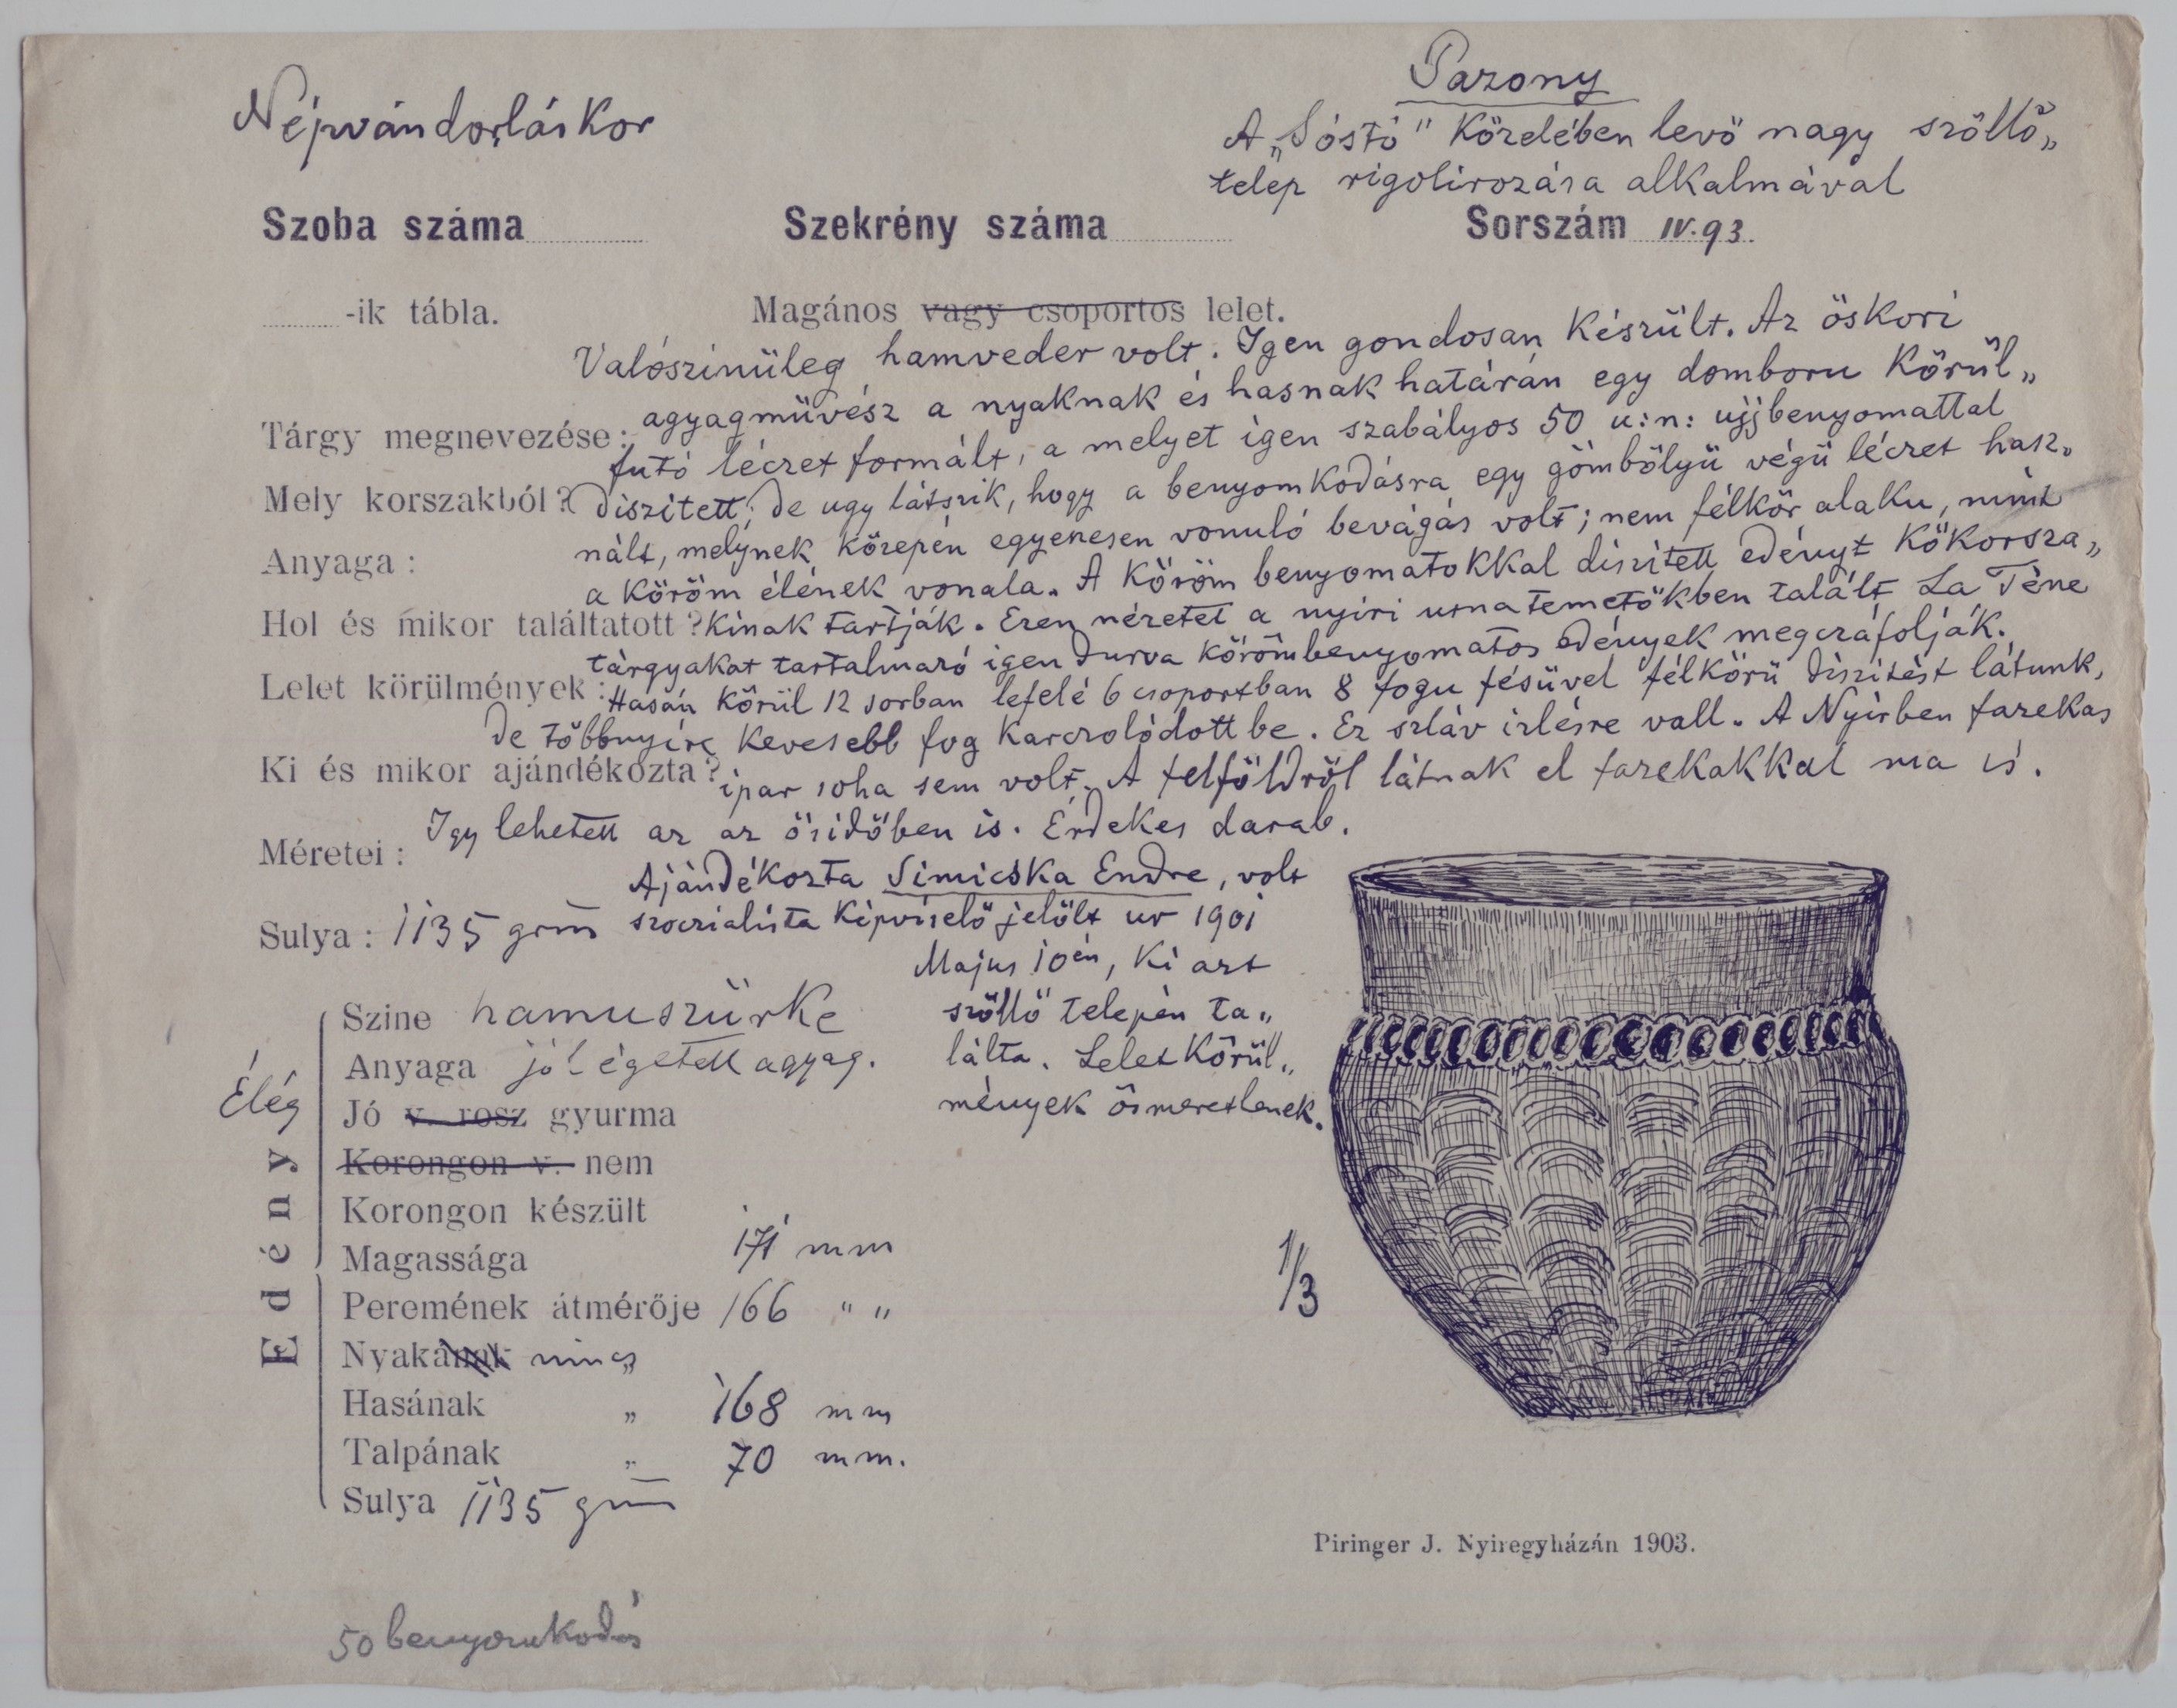 Népvándorláskor
Pazony
A „Sóstó" közelében levő nagy szőllő„
telep rigolirozása alkalmával
Szoba száma
Szekrény száma
Sorszám IV.93.
-ik tábla.
Magános vagy csoportos lelet.
Valószinüleg hamveder volt. Igen gondosan készült. Az őskori
agyagmüvész a nyaknak és hasnak határán egy domboru körül„
Tárgy megnevezése:
futó léczet formált, a melyet igen szabályos 50 u:n: ujjbenyomattal
Mely korszakból?
diszitett; de ugy látszik, hogy a benyomkodásra egy gömbölyü végü léczet hasz„
nált, melynek közepén egyenesen vonuló bevágás volt; nem félkör alaku, mint
Anyaga:
a köröm élének vonala. A köröm benyomatokkal diszitett edényt kőkorsza„
Hol és mikor találtatott?
kinak tartják. Ezen nézetet a nyiri urnatemetőkben talált La Téne
tárgyakat tartalmazó igen durva körömbenyomatos edények megczáfolják.
Lelet körülmények:
Hasán körül 12 sorban lefelé 6 csoportban 8 fogu fésüvel félkörü diszitést látunk,
de többnyire kevesebb fog karczolódott be. Ez szláv izlésre vall. A Nyirben fazekas
Ki és mikor ajándékozta?
ipar soha sem volt. A felföldről látnak el fazekakkal ma is.
Igy lehetett az az ősidőben is. Érdekes darab.
Méretei:
Ajándékozta Simicska Endre, volt
szoczialista képviselő jelölt ur 1901
Sulya: 1135 grm
Majus 10én, ki azt
szőllő telepén ta„
lálta. Leletkörül„
mények ösmeretlenek.
Szine hamuszürke
Anyaga jól égetett agyag.
Elég
Jó v. rosz gyurma
Korongon v. nem
Korongon készült
Edény
Magassága 171 mm
Peremének átmérője 166 " "
Nyakának nincs „
Hasának „ 168 mm
Talpának „ 70 mm.
Sulya 1135 grm
1/3
Piringer J. Nyiregyházán 1903.
50 benyomkodás